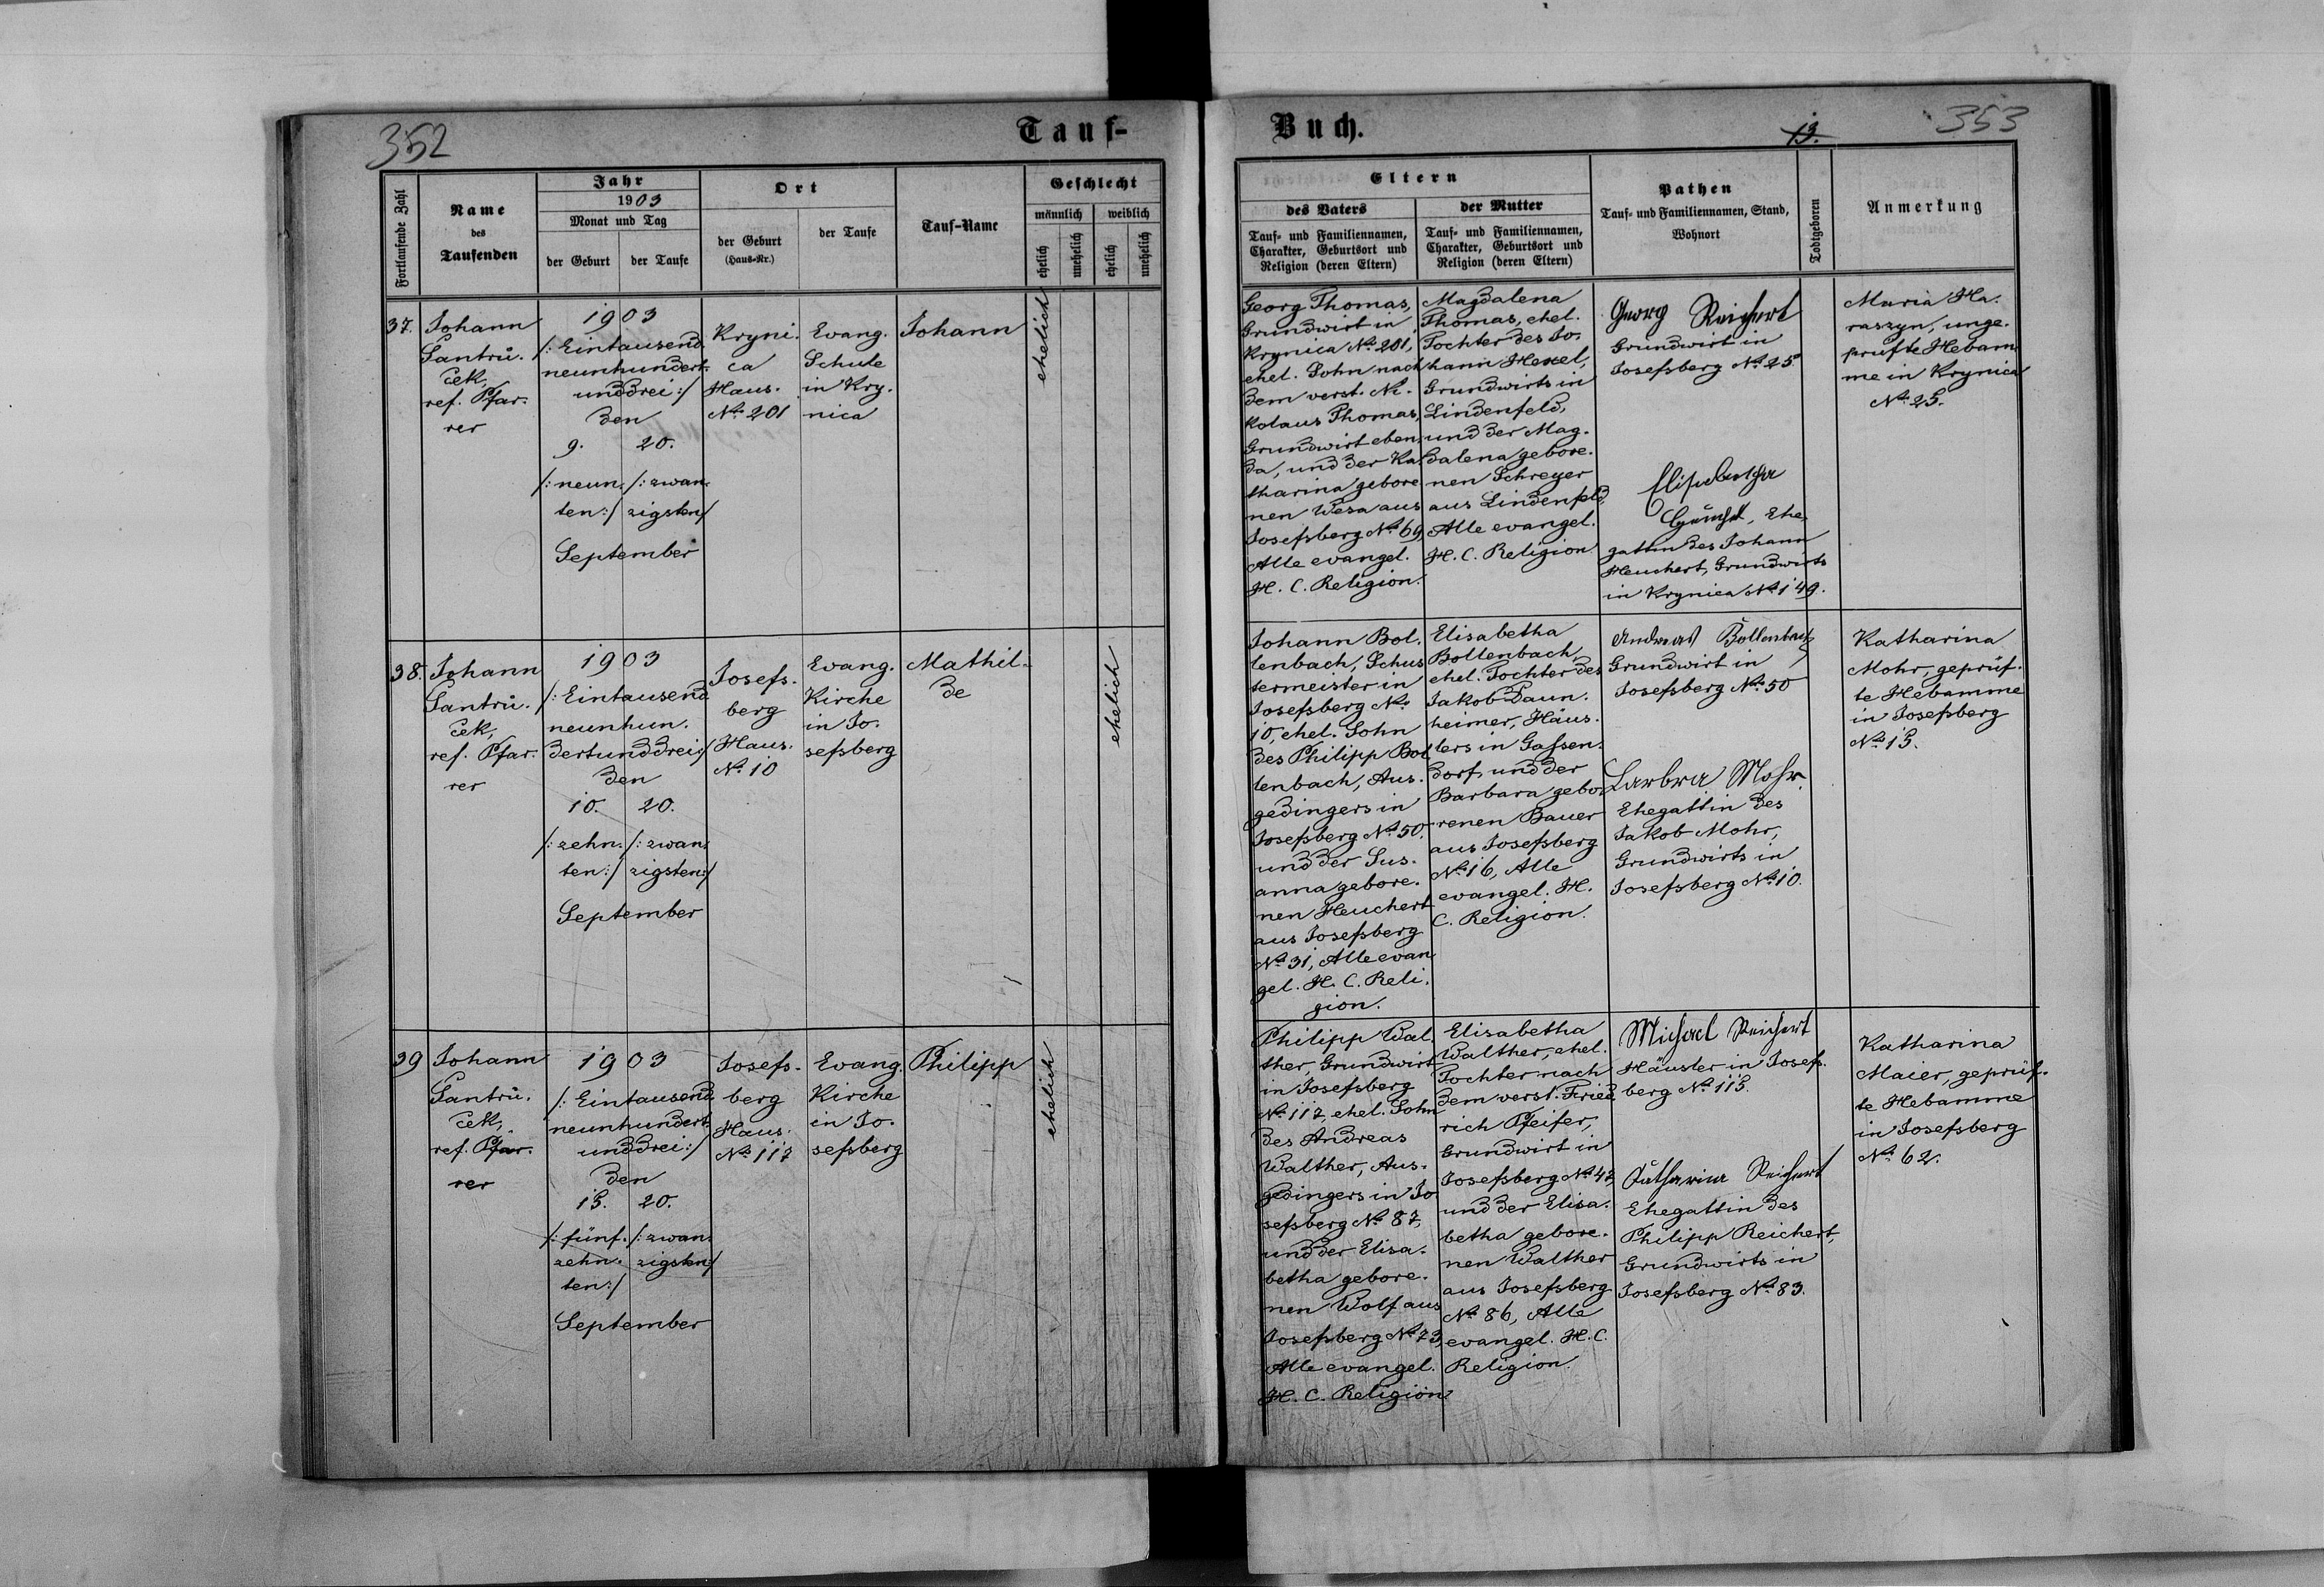 352
Tauf-
Fortlaufende Zahl
Name
des
Taufenden
Jahr
1903
Monat und Tag
der Geburt
der Taufe
Ort
der Geburt
(Haus-Nr.)
der Taufe
Tauf-Name
Geschlecht
männlich
weiblich
ehelich
unehelich
ehelich
unehelich
37.
Johann
Santrů.
ček,
ref. Pfar.
rer
1903
/: Eintausend
neunhundert.
unddrei :/
den
9.
20.
/: neun.
ten :/
/: zwan.
zigsten :/
September
Kryni.
ca
Haus.
No 201
Evang.
Schule
in Kry.
nica
Johann
ehelich
38.
Johann
Santrů.
ček,
ref. Pfar.
rer
1903
/: Eintausend
neunhun.
dertunddrei :/
den
10.
20.
/: zehn.
ten :/
/: zwan.
zigsten :/
September
Josefs.
berg
Haus.
No 10
Evang.
Kirche
in Jo.
sefsberg
Mathil.
de
ehelich
39
Johann
Santrů.
ček,
ref. Pfar.
rer
1903
/: Eintausend
neunhundert.
unddrei :/
den
15.
20.
/: fünf.
zehn.
ten :/
/: zwan.
zigsten :/
September
Josefs.
berg
Haus.
No 117
Evang.
Kirche
in Jo.
sefsberg
Philipp
ehelich
Buch.
13.
353
Eltern
des Vaters
Tauf- und Familiennamen,
Charakter, Geburtsort und
Religion (deren Eltern)
der Mutter
Tauf- und Familiennamen,
Charakter, Geburtsort und
Religion (deren Eltern)
Pathen
Tauf- und Familiennamen, Stand,
Wohnort
Todtgeboren
Anmerkung
Georg Thomas,
Grundwirt in
Krynica No 201,
ehel. Sohn nach
dem verst. Ni.
kolaus Thomas,
Grundwirt eben.
da, und der Ka.
tharina gebore
nen Wesa aus
Josefsberg No 69,
Alle evangel.
H. C. Religion.
Magdalena
Thomas, ehel.
Tochter des Jo.
hann Hexel,
Grundwirts in
Lindenfeld,
und der Mag.
dalena gebore.
nen Schreyer
aus Lindenfeld,
Alle evangel.
H. C. Religion
Georg Reichert
Grundwirt in
Josefsberg No 25.
Elisabetha
Heuchert, Ehe
gattin des Johann
Heuchert, Grundwirts
in Krynica No 149.
Maria Ha.
raszyn, unge.
prüfte Hebam
me in Krynica
No 25.
Johann Bol.
lenbach, Schus
termeister in
Josefsberg No
10, ehel. Sohn
des Philipp Bol
lenbach, Aus.
gedingers in
Josefsberg No 50.
und der Sus.
anna gebore.
nen Heuchert
aus Josefsberg
No 31, Alle evan
gel. H. C. Reli.
gion.
Elisabetha
Bollenbach,
ehel. Tochter des
Jakob Daun.
heimer, Häus.
lers in Gassen.
dorf, und der
Barbara gebo.
renen Bauer
aus Josefsberg
No 16, Alle
evangel. H.
C. Religion.
Andreas Bollenbach
Grundwirt in
Josefsberg No 50
Barbra Mohr
Ehegattin des
Jakob Mohr,
Grundwirts in
Josefsberg No 10.
Katharina
Mohr, geprüf.
te Hebamme
in Josefsberg
No 15.
Philipp Wal.
ther, Grundwirt
in Josefsberg
No 117, ehel. Sohn
des Andreas
Walther, Aus.
gedingers in Jo
sefsberg No 87,
und der Elisa.
betha gebore.
nen Wolf aus
Josefsberg No 73,
Alle evangel.
H. C. Religion
Elisabetha
Walther, ehel.
Tochter nach
dem verst. Fried.
rich Pfeifer,
Grundwirt in
Josefsberg No 42,
und der Elisa.
betha gebore.
nen Walther
aus Josefsberg
No 86, Alle
evangel. H. C.
Religion.
Michael Reichert
Häusler in Josefs.
berg No 115.
Katharina Reichert
Ehegattin des
Philipp Reichert,
Grundwirts in
Josefsberg No 83.
Katharina
Maier, geprüf.
te Hebamme
in Josefsberg
No 62.